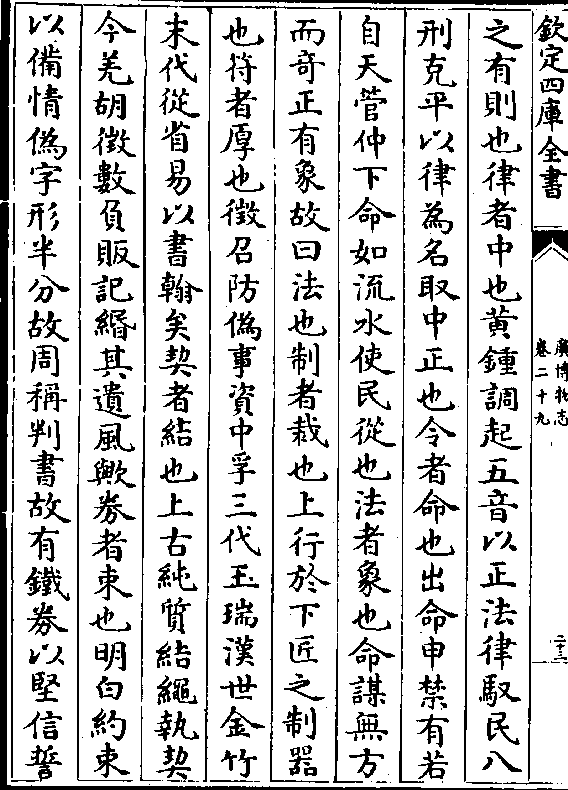 欽定四庫全書
廣博物志
卷二十九
二十三
之有則也律者中也黃鍾調起五音以正法律馭民八
刑克平以律為名取中正也令者命也出命申禁有若
自天管仲下命如流水使民從也法者象也命謀無方
而奇正有象故曰法也制者裁也上行於下匠之制器
也符者厚也徵召防偽事資中孚三代玉瑞漢世金竹
末代從省易以書翰矣契者結也上古純質結繩執契
今羌胡徴數負販記緡其遺風歟券者束也明白約束
以備情偽字形半分故周稱判書故有鐵券以堅信誓